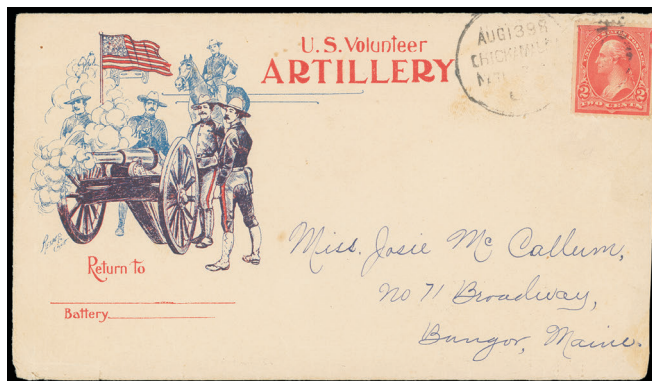 U.S. Volunteer
ARTILLERY
AUG 13 98
UNITED STATES OF AMERICA
2 2
TWO CENTS
Return to
Battery
Miss. Josie Mc Callum,
No 71 Broadway,
Bangor, Maine.